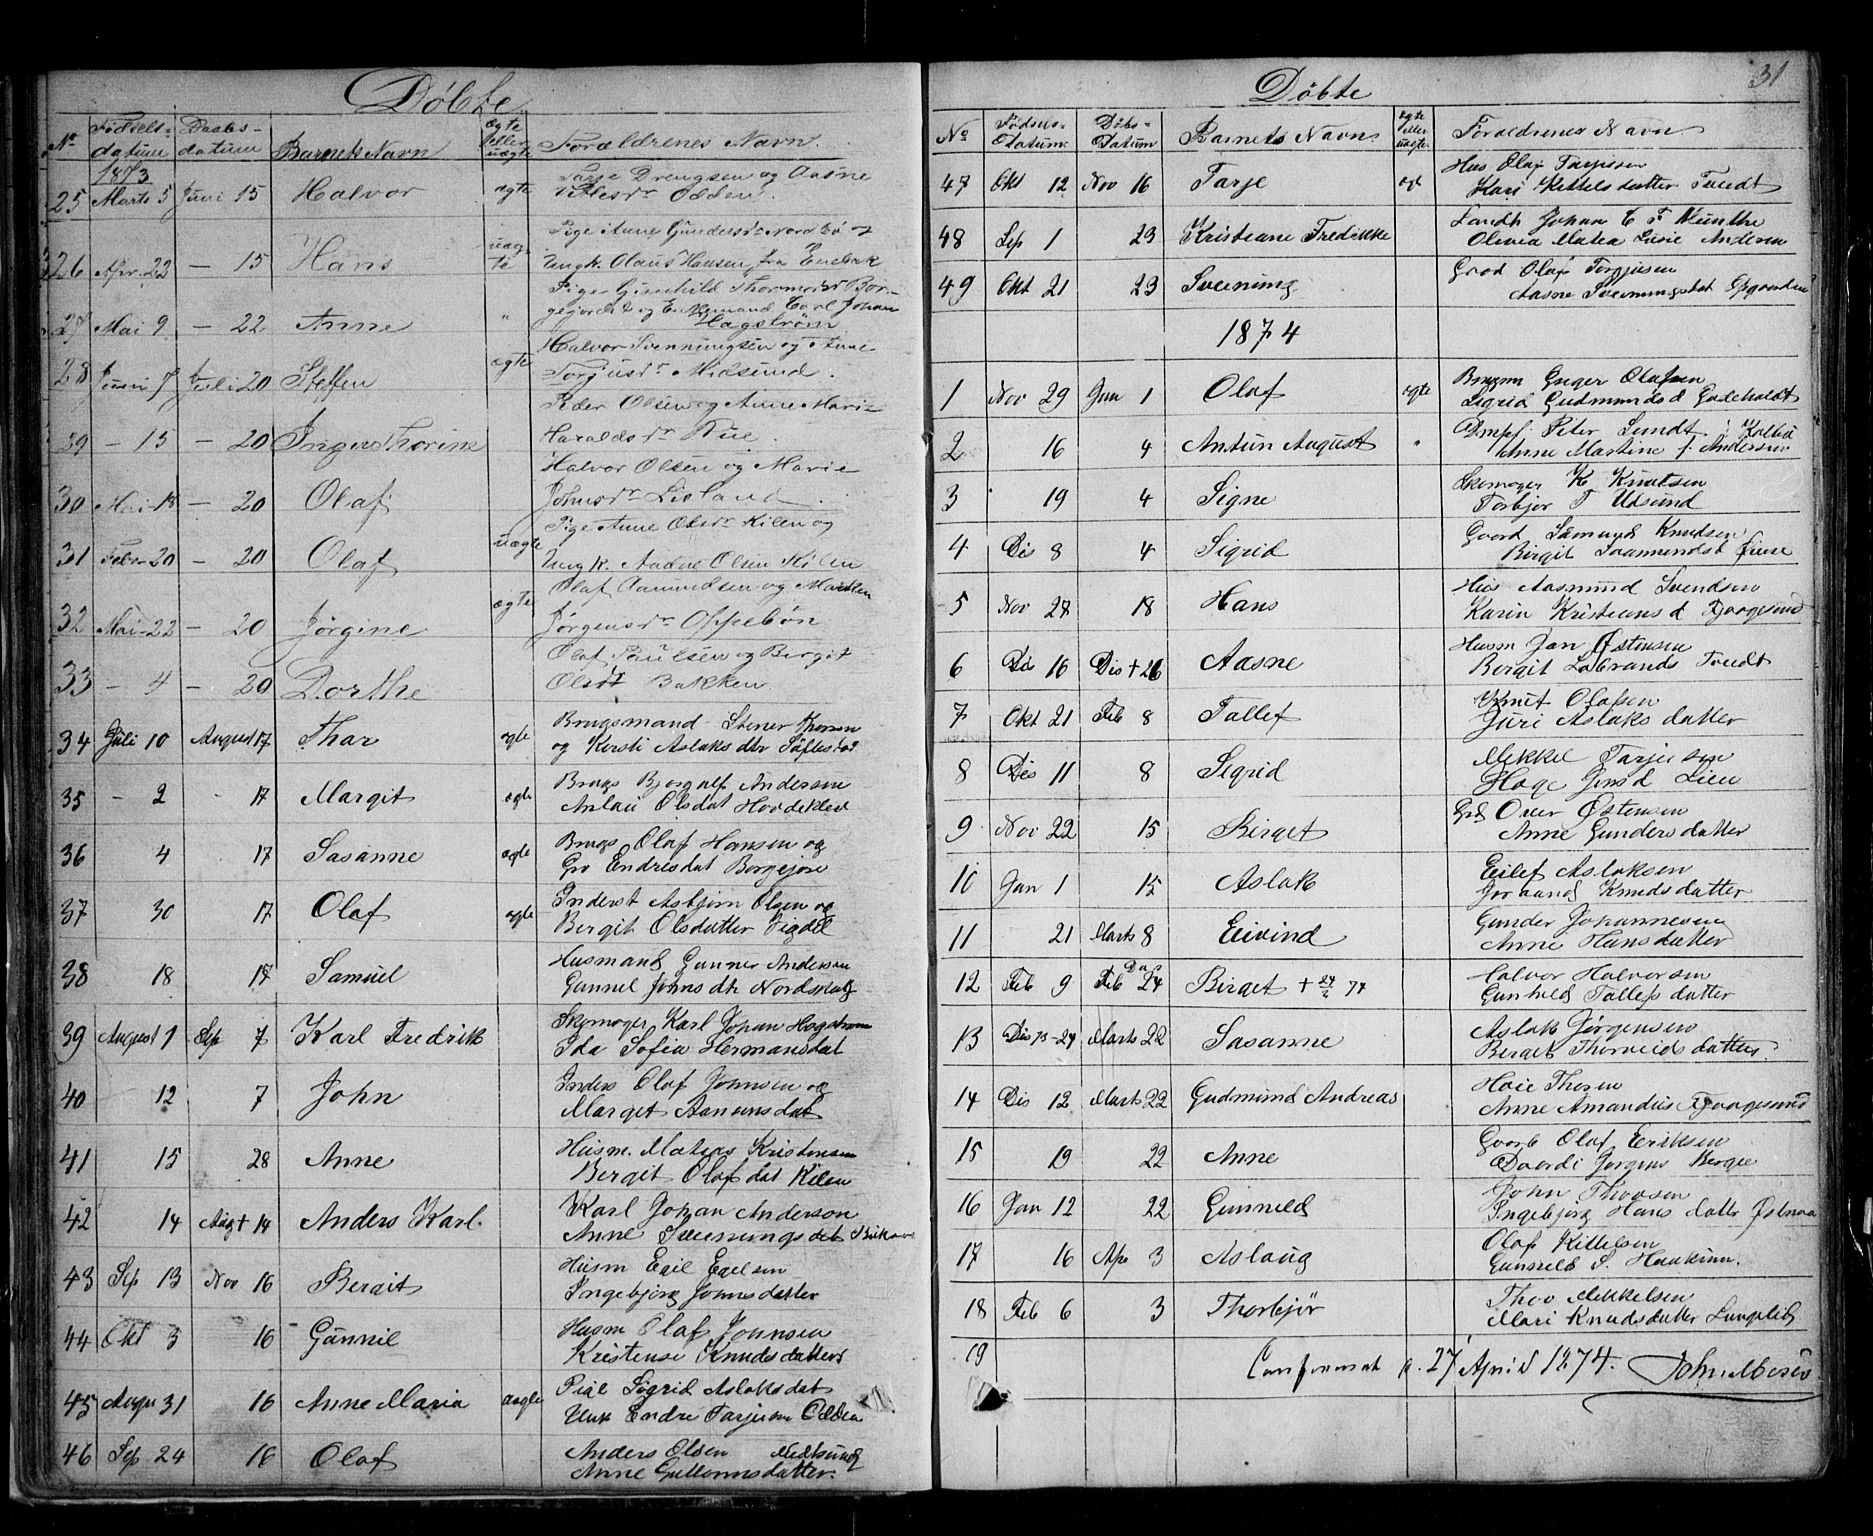 Döbte
No Fødsels-datum Daabs-datum Barnets Navn ægte eller uægte Forældrenes Navn.
1873
25 Marts 5 Juni 15 Halvor ægte Tarje Drengsen og Aasne
Olden.
26 Apr. 22 — 15 Hans uægte Pige Anne Gundersdr Nordbø og
Ungk. Olaus Hansen fra Enebak
27 Mai 9 — 22 Anne " Pige Gunhild Thormodsdr Bor-
gejordet og Enkemand Carl Johan
Hagstrøm
28 Juni 7 Juli 20 Steffen ægte Halvor Svenningsen og Anne
Torjusdr Midsund.
29 — 15 — 20 Inger Thorine Peder Olsen og Anne Marie
Haraldsdr Rue.
30 Mai 18 — 20 Olaf Halvor Olsen og Marie
Johnsdr Lisland.
31 Febr 20 — 20 Olaf uægte Pige Anne Olsdr Kilen og
Ungk. Andre Olsen Kilen
32 Mai 22 — 20 Jørgine ægte Olaf Aamundsen og Marthe
Jørgensdr Oppebøn
33 — 4 — 20 Dorthe Olaf Paulsen og Bergit
Olsdr Bakken
34 Juli 10 August 17 Thar ægte Brugsmand Stener
og Kersti Aslaks dtr
35 — 2 - 17 Margit ægte Brugs Bjorgulf Andersen
Aslau Olsdat Hovdeklev
36 4 - 17 Sasanne ægte Brugs Olaf Hansen og
Gro Endresdat Borgejore
37 30 17 Olaf ægte Inderst Asbjorn Olsen og
Bergit Olsdatter Sigdel
38 18 17 Samuel Husmand Gunner Andersen
Gunnel Johns dtr Nordsplads
39 August 1 Sep 7 Karl Fredrik Skomager Karl Johan Hagstrøm
Ida Sofia Hermansdat
40 12 7 John Inders Olaf Johnsen og
Marget Aanunsdat
41 15 28 Anne Husm. Matias Kristensen
Bergit Olaf dat Kilen
42 14 Aug + 14 Anders Karl. Karl Johan Anderson
Anne Sveinungsdat
43 Sep 13 Nov 16 Bergit Husm Egil Egelsen
Ingebjorg Johnsdatter
44 Okt 3 16 Gunnil Husm Olaf Johnsen
Kristense Knudsdatter
45 Augu 31 16 Anne Maria uægte Pige Sigrid Aslaksdat
Unk Endre Tarjesen Odden
46 Sep 24 16 Olaf Anders Olsen Midtsund
Anne Guttormsdatter.
31
Döbte
No Fødsels-Datum Døbs-Datum Barnets Navn ægte eller uægte Foreldrenes Navn
47 Okt 12 Nov 16 Tarje ægt Hus Olaf Tarjesen
Kari Kittelsdatter Tvedt
48 Sep 1 23 Kristiane Fredrikke Landh Johan C F Munthe
Olivia Matea Lusie Andersen
49 Okt 21 23 Sveinung Gaad Olaf Torgjusen
Aasne Sveinungsdat
1874
1 Nov 29 Jan 1 Olaf ægte Brugsm Gunder Olafsen
Sigrid Gudmunds d
2 16 4 Antun August " Peter Lundt
Anne Martine f. Andersen
3 19 4 Signe Skomager K Knutsen
Torbjor T Udsund
4 Dis 8 4 Sigrid Gaard Samund Knudsen
Birgit Saamundsd
5 Nov 27 18 Hans Hus Aasmund Svendsen
Karin Kristians d
6 Dis 16 Dis + 26 Aasne Husm Jan Østensen
Bergit Labrands Tvedt
7 Okt 21 Feb 8 Tallef Knut Olafsen
Juri Aslaks datter
8 Dis 11 8 Sigrid Mekkel Tarjesen
Hage Jens d Lien
9 Nov 22 15 Birget Grd Over Østensen
Anne Gunders datter
10 Jan 1 15 Aslak Eilef Aslaksen
Joraand Knudsdatter
11 21 Marts 8 Eivind Gunder Johannesen
Anne Hansdatter
12 Feb 9 Feb 24 Birget + 24/2 74 Halvor Halvorsen
Gunhild Tallefs datter
13 Dis 73-29 Marts 22 Sasanne Aslak Jørgensen
Berget datter.
14 Dis 12 Marts 22 Gudmund Andreas Haie Thosen
Anne Amandus
15 19 22 Anne Gaard Olaf Eriksen
Jorgens Bergee
16 Jan 12 22 Gunnild John Thovsen
Ingebjorg Hans datter
17 16 Ap 3 Aslaug Olaf Kittelsen
Gunnild S.
18 Feb 6 3 Thorbjör Thov Mekkelsen
Mari Knudsdatter
19
Confereret d. 27 April 1874.